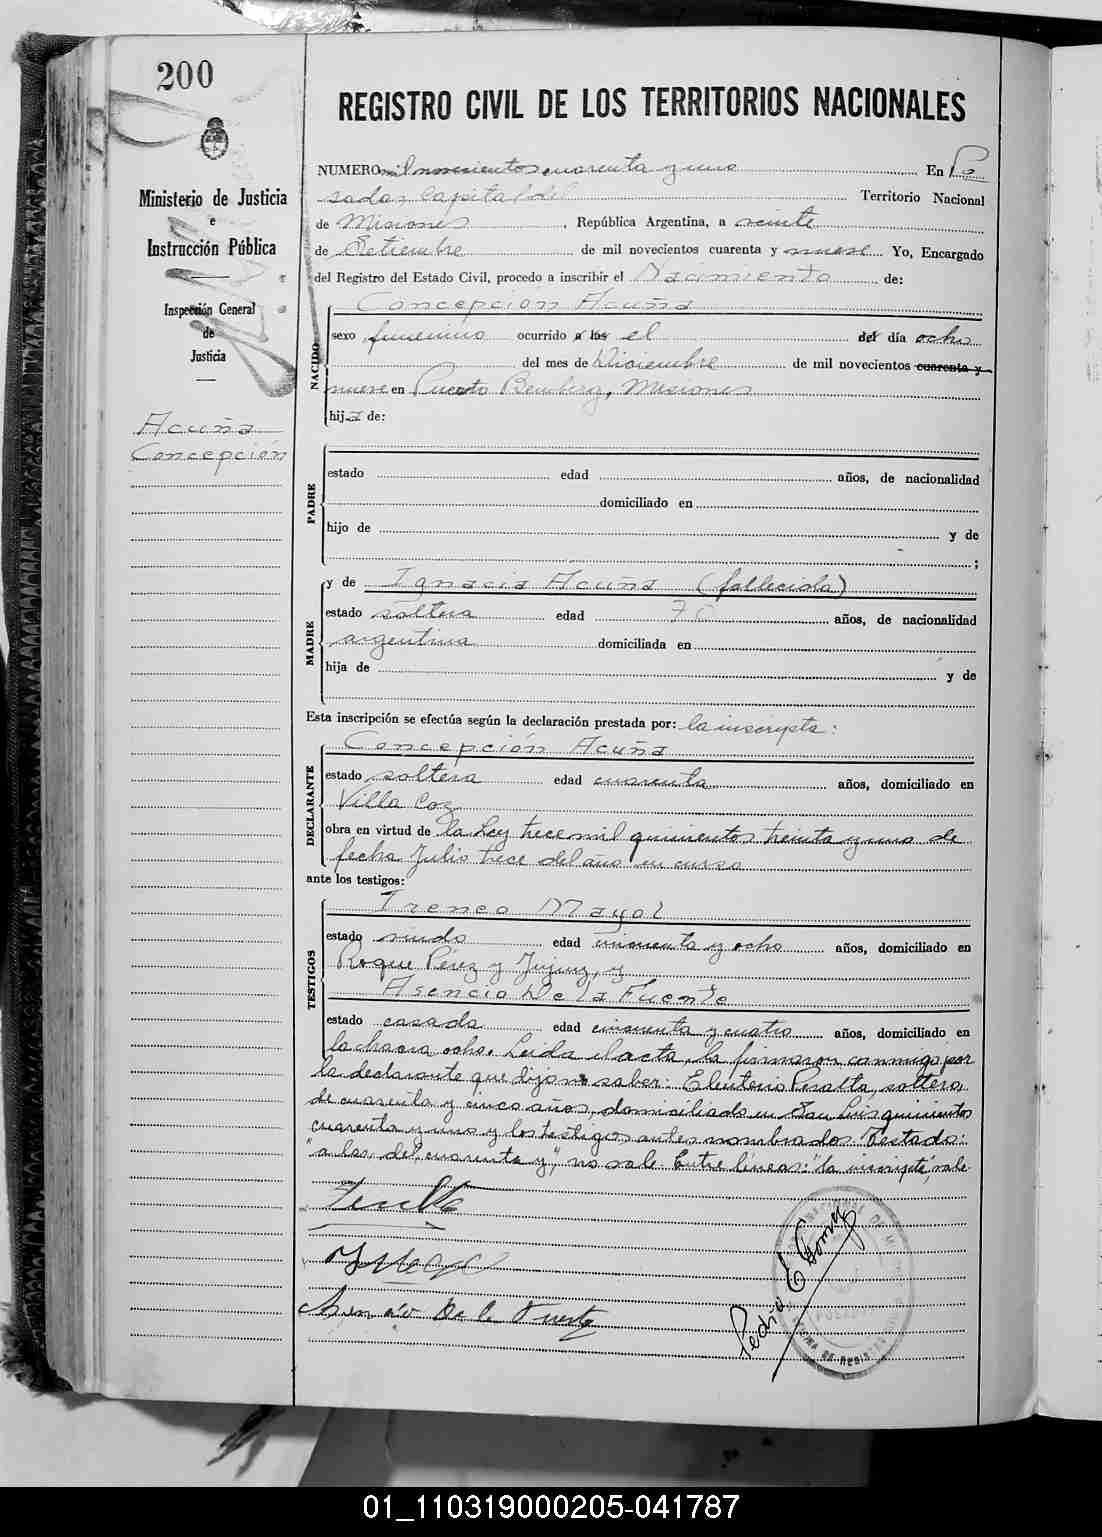 200
REGISTRO CIVIL DE LOS TERRITORIOS NACIONALES
Ministerio de Justicia
e
Instrucción Pública
Inspección General
de
Justicia
Acuña
Concepción
NUMERO mil novecientos cuarenta y uno En Po
sadas Capital del Territorio Nacional
de Misiones, República Argentina, a veinte
de Setiembre de mil novecientos cuarenta y nueve Yo, Encargado
del Registro del Estado Civil, procedo a inscribir el Nacimiento de:
NACIDO
Concepción Acuña
sexo femenino ocurrido a las el del día ocho
del mes de Diciembre de mil novecientos cuarenta y
nueve en Puerto Bemberg, Misiones
hija de:
PADRE
estado edad años, de nacionalidad
domiciliado en
hijo de y de
;
MADRE
y de Ignacia Acuña (fallecida)
estado soltera edad años, de nacionalidad
argentina domiciliada en
hija de y de
Esta inscripción se efectúa según la declaración prestada por: la inscripta:
DECLARANTE
Concepción Acuña
estado soltera edad cuarenta años, domiciliado en
Villa Coz
obra en virtud de la Ley trece mil quinientos treinta y uno de
fecha Julio trece del año en curso
ante los testigos:
TESTIGOS
Ireneo Mayol
estado viudo edad cincuenta y ocho años, domiciliado en
Roque Pérez y Jujuy, y
Asencio De la Fuente
estado casado edad cincuenta y cuatro años, domiciliado en
la chacra ocho. Leida el acta, la firmaron conmigo por
la declarante que dijo no saber: Eleuterio Peralta, soltero,
de cuarenta y cinco años, domiciliado en San Luis quinientos
cuarenta y uno y los testigos antes nombrados. Testado:
"a las, del, cuarenta y", no vale. Entre líneas: "la inscripta", vale.
Asencio De la Fuente
Pedro E Gomez
01_110319000205-041787